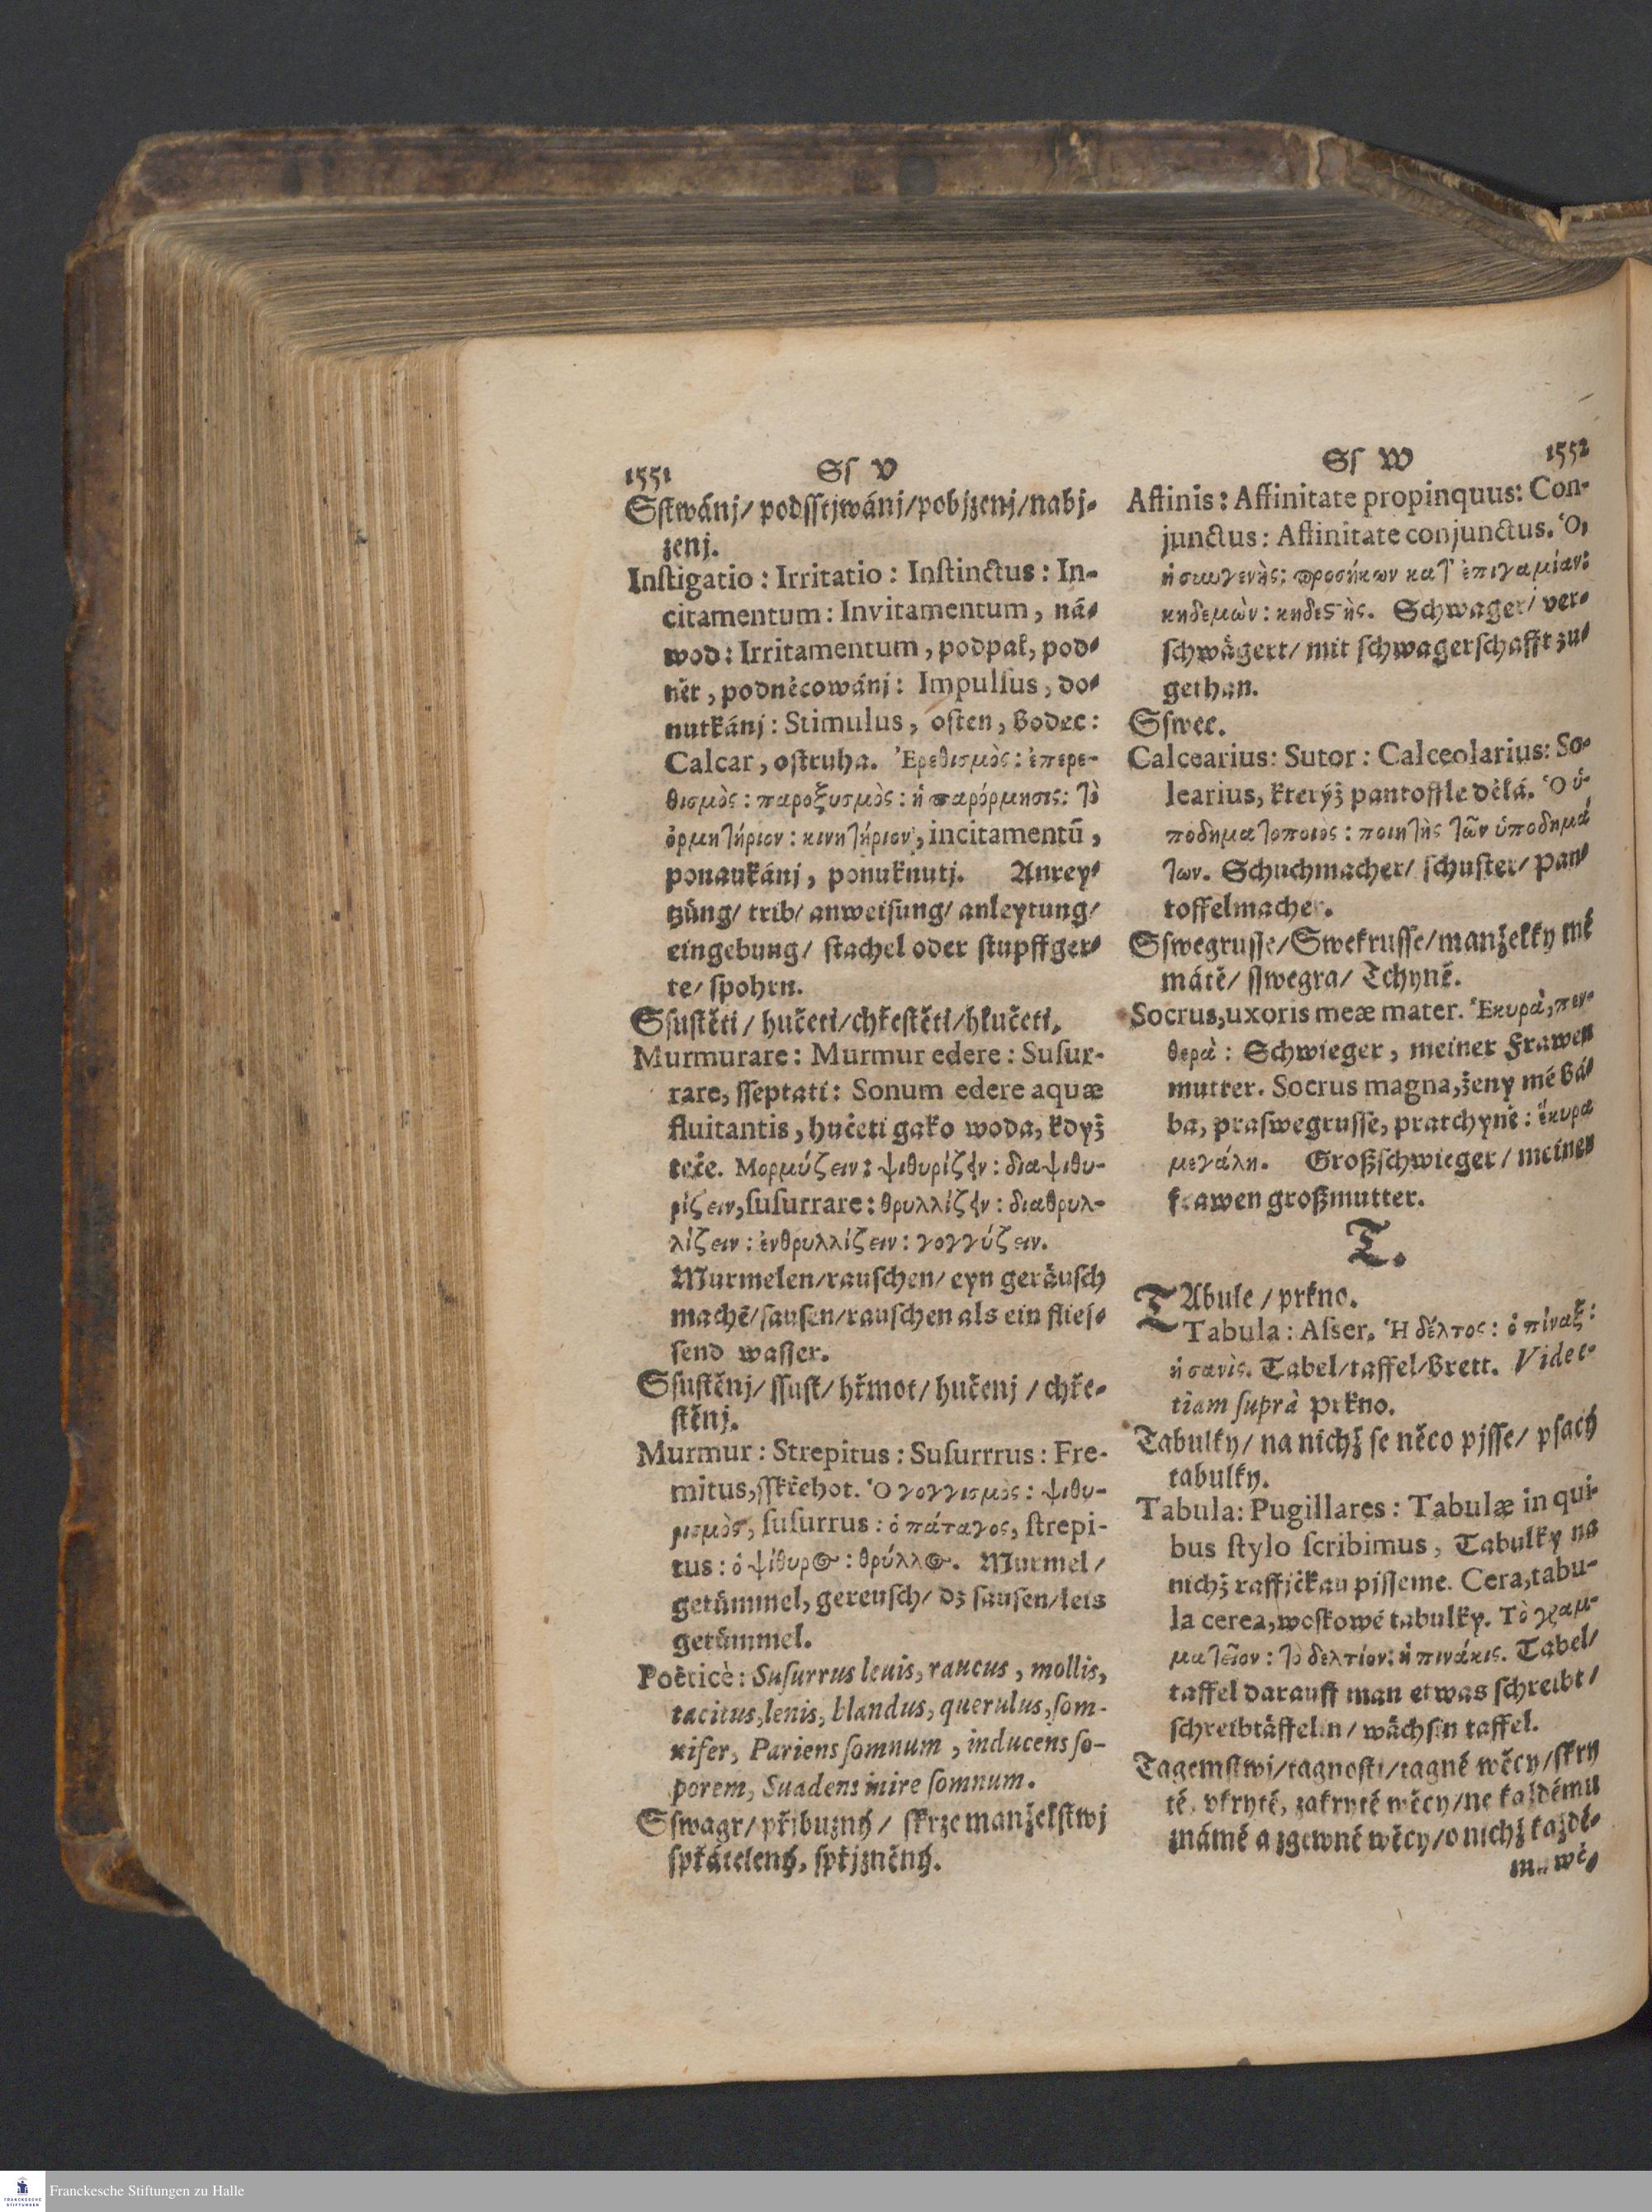 1551 Sſ V
Sſtwánj/ podſſtjwánj/pobjzenj/nabj-
zenj.
Inſtigatio : Irritatio : Inſtinctus : In-
citamentum : Invitamentum, ná-
wod : Irritamentum, podpal, pod-
nět, podněcowánj : Impulſus, do-
nutkánj : Stimulus, oſten, Bodec :
Calcar, oſtruha. Ἐρεθισμὸς : ἐπερε-
θισμὸς : παροξυσμὸς : ἡ παρόρμησις : τὸ
ὁρμητήριον : κινητήριον, incitamentũ,
ponaukánj, ponuknutj. Anrey-
tzüng/ trib/ anweiſung/ anleytung/
eingebung/ ſtachel oder ſtupffger-
te/ ſpohrn.
Sſuſtěti / hučeti/chřeſtěti/hlučeti.
Murmurare : Murmur edere : Suſur-
rare, ſſeptati : Sonum edere aquæ
fluitantis, hučeti gako woda, když
teče. Μορμύζειν : ψιθυρίζειν : διαψιθυ-
ρίζειν, ſuſurrare : θρυλλίζειν : διαθρυλ-
λίζειν : ἐνθρυλλίζειν : γογγύζειν.
Murmelen/rauſchen/ eyn geräuſch
machē/ſauſen/rauſchen als ein flieſ-
ſend waſſer.
Sſuſtěnj/ ſſuſt/ hřmot/ hučenj / chře-
ſtěnj.
Murmur : Strepitus : Suſurrrus : Fre-
mitus, ſſkřehot. Ὁ γογγισμὸς : ψιθυ-
ρισμὸς, ſuſurrus : ὁ πάταγος, ſtrepi-
tus : ὁ ψίθυρος : θρύλλος. Murmel /
getümmel, gereuſch/ dz ſauſen/leis
getümmel.
Poëticè : Suſurrus levis, raucus, mollis,
tacitus, lenis, blandus, querulus, ſom-
nifer, Pariens ſomnum, inducens ſo-
porem, Suadens inire ſomnum.
Sſwagr/ přjbuzný / ſkrze manželſtwj
ſpřátelený, ſpřjzněný.
Sſ W 1552
Affinis : Affinitate propinquus: Con-
junctus : Affinitate conjunctus. Ὁ,
ἡ συγγενὴς : προσήκων κατ' ἐπιγαμίαν :
κηδεμὼν : κηδεστὴς. Schwager/ ver-
ſchwägert/ mit ſchwagerſchafft zu-
gethan.
Sſwec.
Calcearius: Sutor : Calceolarius: So-
learius, kterýž pantoffle dělá. Ὁ ὑ-
ποδηματοποιὸς : ποιητὴς τῶν ὑποδημά
των. Schuchmacher/ ſchuſter/ pan-
toffelmacher.
Sſwegruſſe/Swekruſſe/manželky mé
mátě/ ſſwegra/ Tchyně.
Socrus, uxoris meæ mater. Ἑκυρὰ, πεν-
θερὰ : Schwieger, meiner Frawen
mutter. Socrus magna, ženy mé Bá-
ba, praſwegruſſe, pratchyně : ἑκυρα
μεγάλη. Großſchwieger/ meiner
frawen großmutter.
T.
TAbule / prkno.
Tabula : Aſser. Ἡ δέλτος : ὁ πίναξ :
ἡ σανὶς. Tabel/taffel/Brett. Vide e-
tiam ſuprà Prkno.
Tabulky/ na nichž ſe něco pjſſe/ pſacý
tabulky.
Tabula: Pugillares : Tabulæ in qui-
bus ſtylo ſcribimus, Tabulky na
nichž raffičkau piſſeme. Cera, tabu-
la cerea, woſkowé tabulky. Τὸ γραμ-
ματεῖον : τὸ δελτίον : ἡ πινάκις. Tabel/
taffel darauff man etwas ſchreibt/
ſchreibtäffelin/ wächſin taffel.
Tagemſtwj/tagnoſti/tagné wěcy/ſkry
té, vkryté, zakryté wěcy/ne každému
známé a zgewné wěcy/o nichž každé-
mu wě-
Franckesche Stiftungen zu Halle